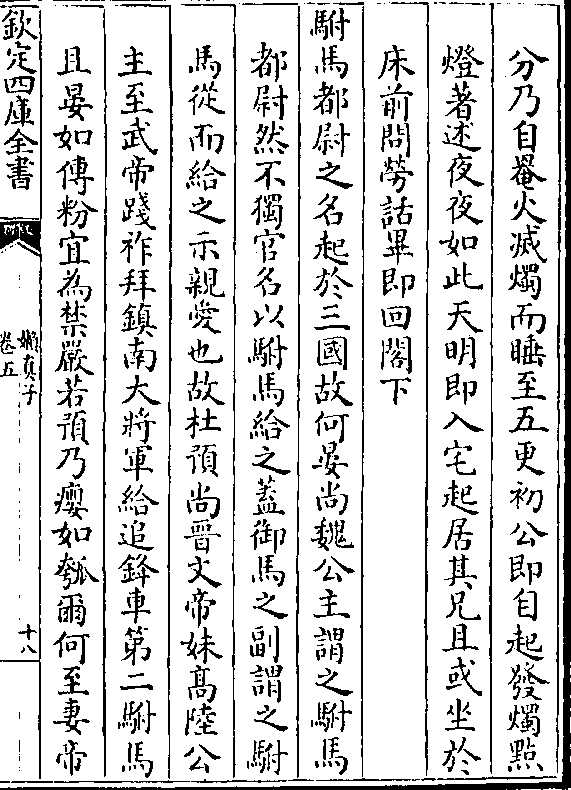 分乃自罨火滅燭而睡至五更初公即自起發燭㸃
燈著述夜夜如此天明即入宅起居其兄且或坐於
床前問勞話畢即回閣下
駙馬都尉之名起於三國故何晏尚魏公主謂之駙馬
都尉然不獨官名以駙馬給之蓋御馬之副謂之駙
馬從而給之示親愛也故杜預尚晉文帝妹髙陸公
主至武帝踐祚拜鎮南大將軍給追鋒車第二駙馬
且晏如傅粉宜為禁臠若預乃癭如瓠爾何至妻帝
欽定四庫全書
嬾真子
卷五
十八